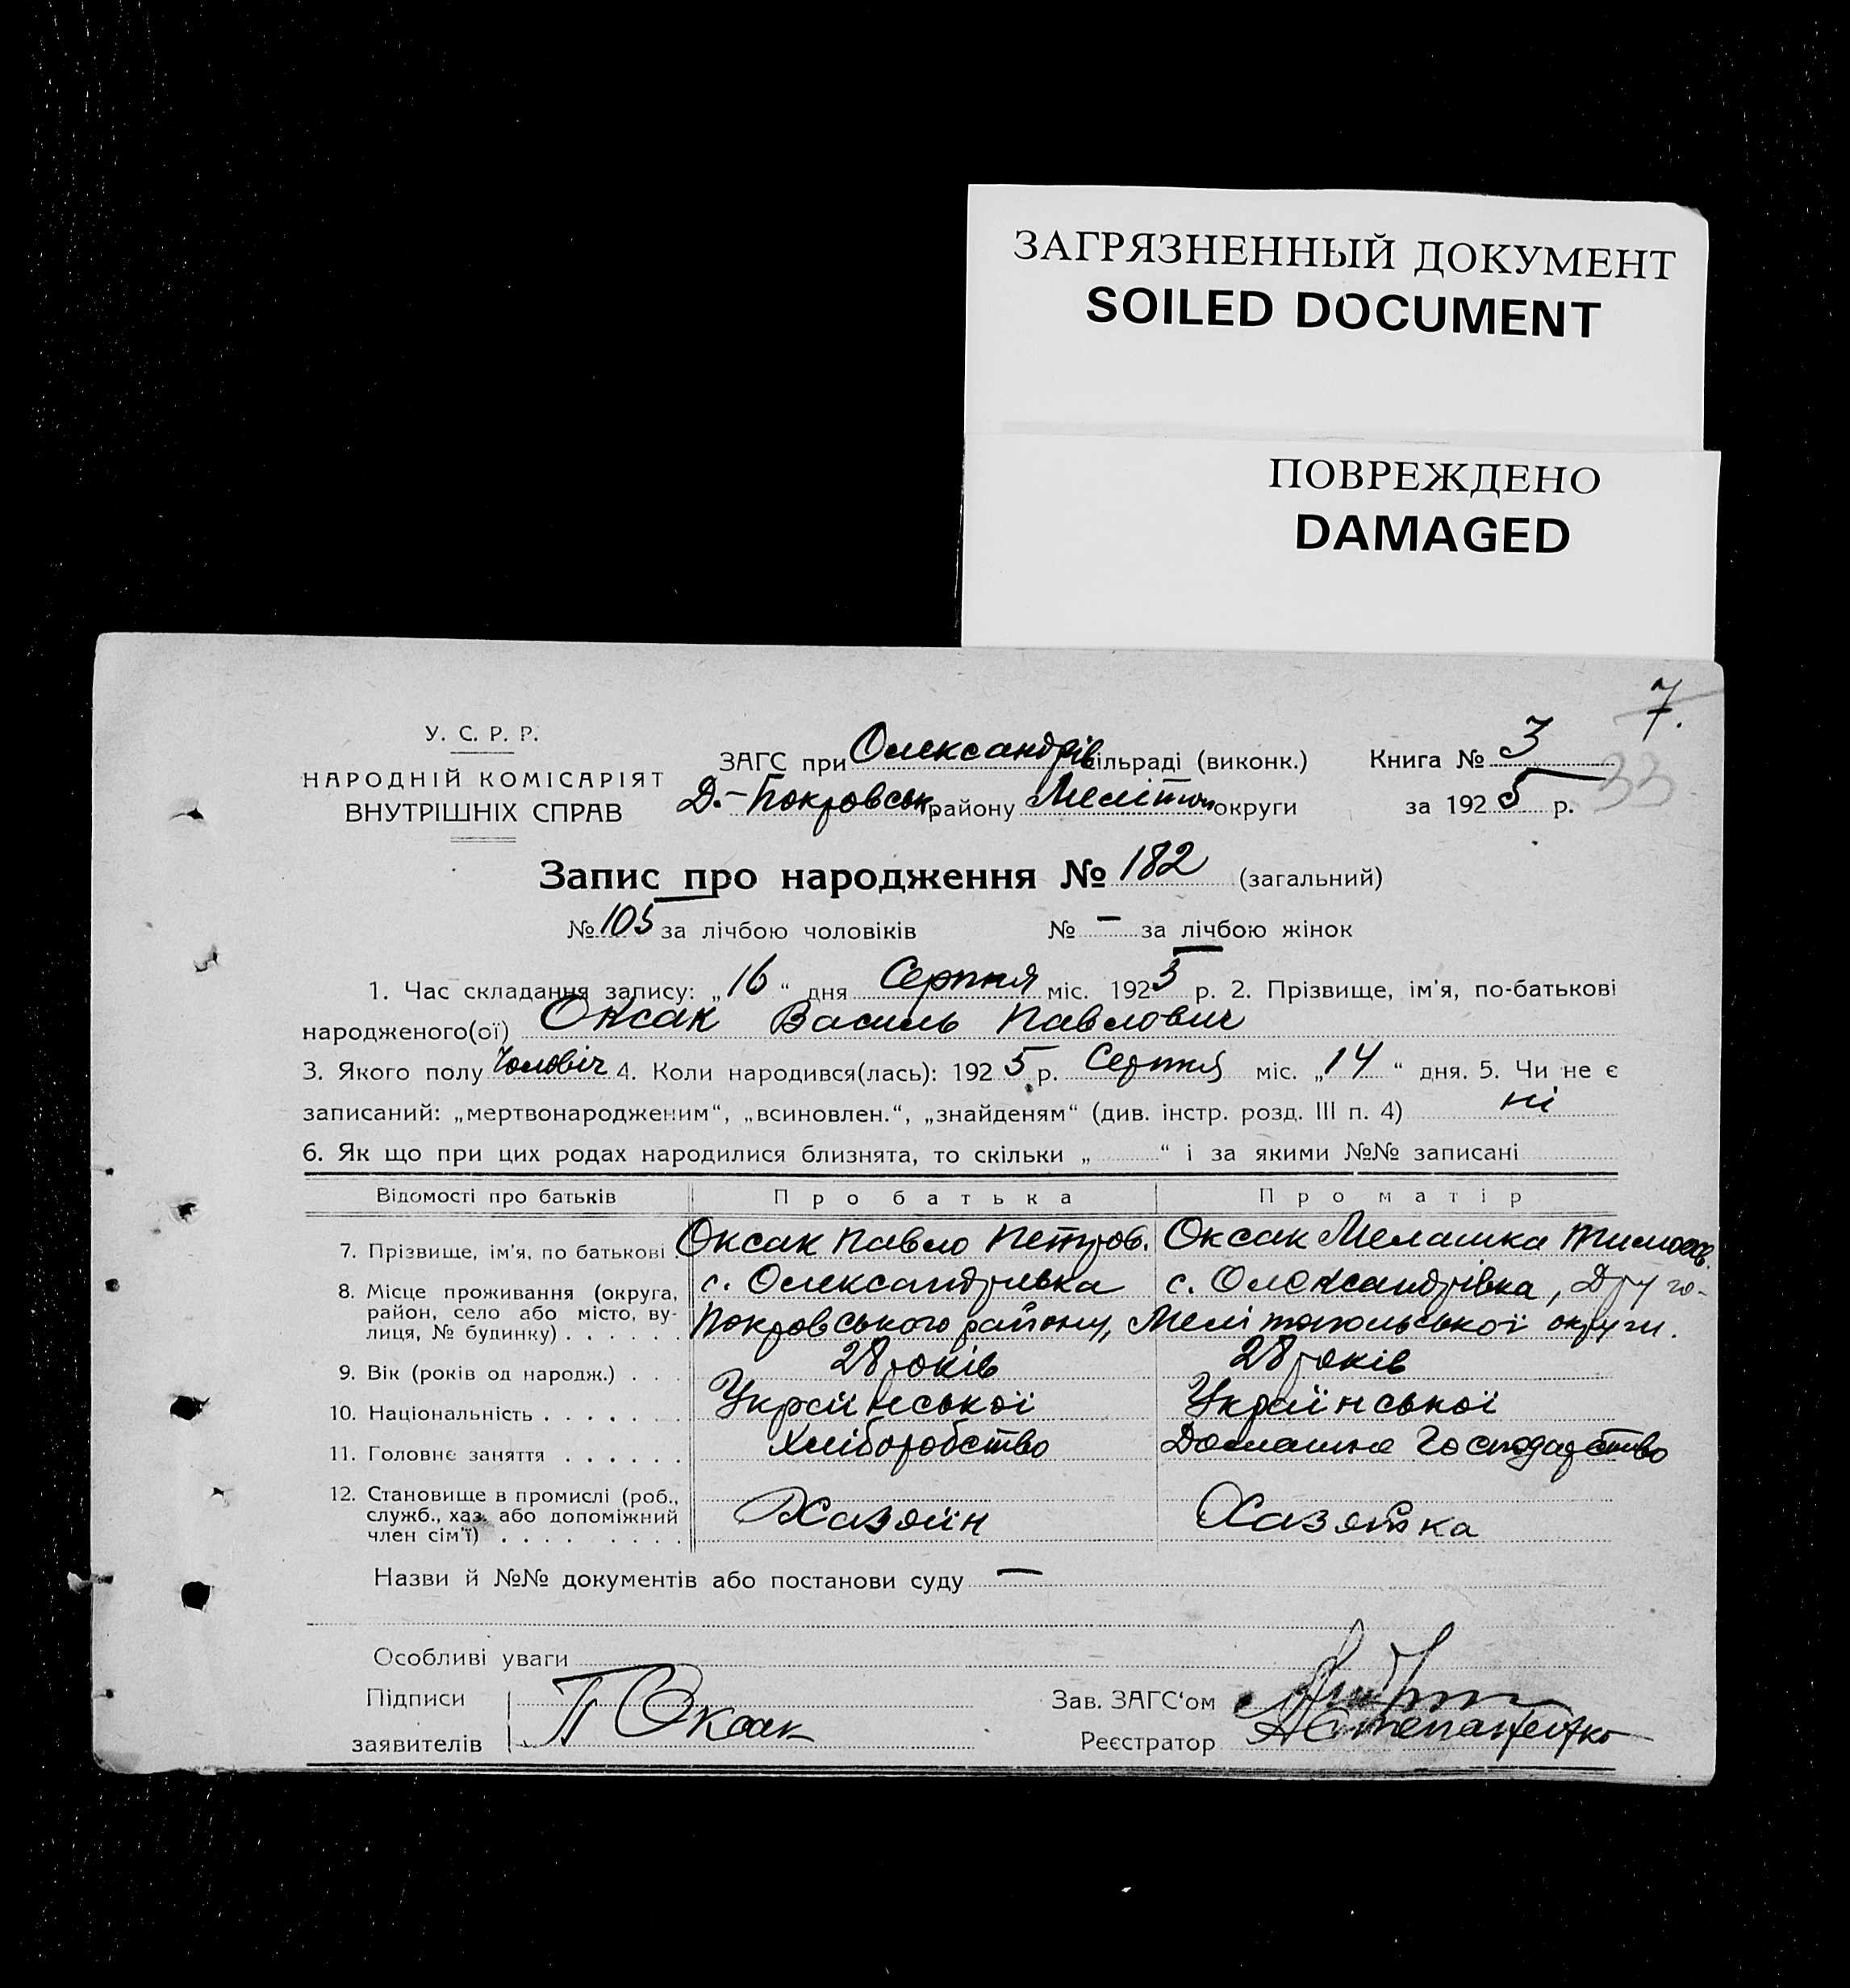 ЗАГРЯЗНЕННЫЙ ДОКУМЕНТ
SOILED DOCUMENT
ПОВРЕЖДЕНО
DAMAGED
7.
33
У. С. Р. Р.
НАРОДНІЙ КОМІСАРІЯТ
ВНУТРІШНІХ СПРАВ
ЗАГС при Олександрів сільраді (виконк.)
Д.-Покровськ. району Меліт округи
Книга № 3
за 1925 р.
Запис про народження № 182 (загальний)
№ 105 за лічбою чоловіків № — за лічбою жінок
1. Час складання запису: „16“ дня Серпня міс. 1925 р. 2. Прізвище, ім'я, по-батькові
народженого(ої) Оксак Василь Павлович
3. Якого полу Чоловіч 4. Коли народився(лась): 1925 р. Серпня міс. „14“ дня. 5. Чи не є
записаний: „мертвонародженим“, „всиновлен.“, „знайденям“ (див. інстр. розд. III п. 4) ні
6. Як що при цих родах народилися близнята, то скільки „ “ і за якими №№ записані
Відомості про батьків Про батька Про матір
7. Прізвище, ім'я, по батькові Оксак Павло Петров. Оксак Мелашка Тимоф.
8. Місце проживання (округа, район, село або місто, вулиця, № будинку) с. Олександрівка с. Олександрівка, Друго-
Покровського району, Мелітопольської округи.
9. Вік (років од народж.) 28 років 28 років
10. Національність Української Української
11. Головнє заняття Хліборобство Домашнє Господарство
12. Становище в промислі (роб., служб., хаз. або допоміжний член сім'ї) Хазяїн Хазяйка
Назви й №№ документів або постанови суду —
Особливі уваги
Підписи
заявителів П Оксак
Зав. ЗАГС'ом
Реєстратор АСтепаненко